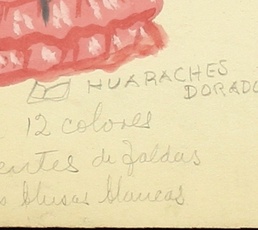 HUARACHES
DORADO
12 colores
entes de faldas
s blusas blancas